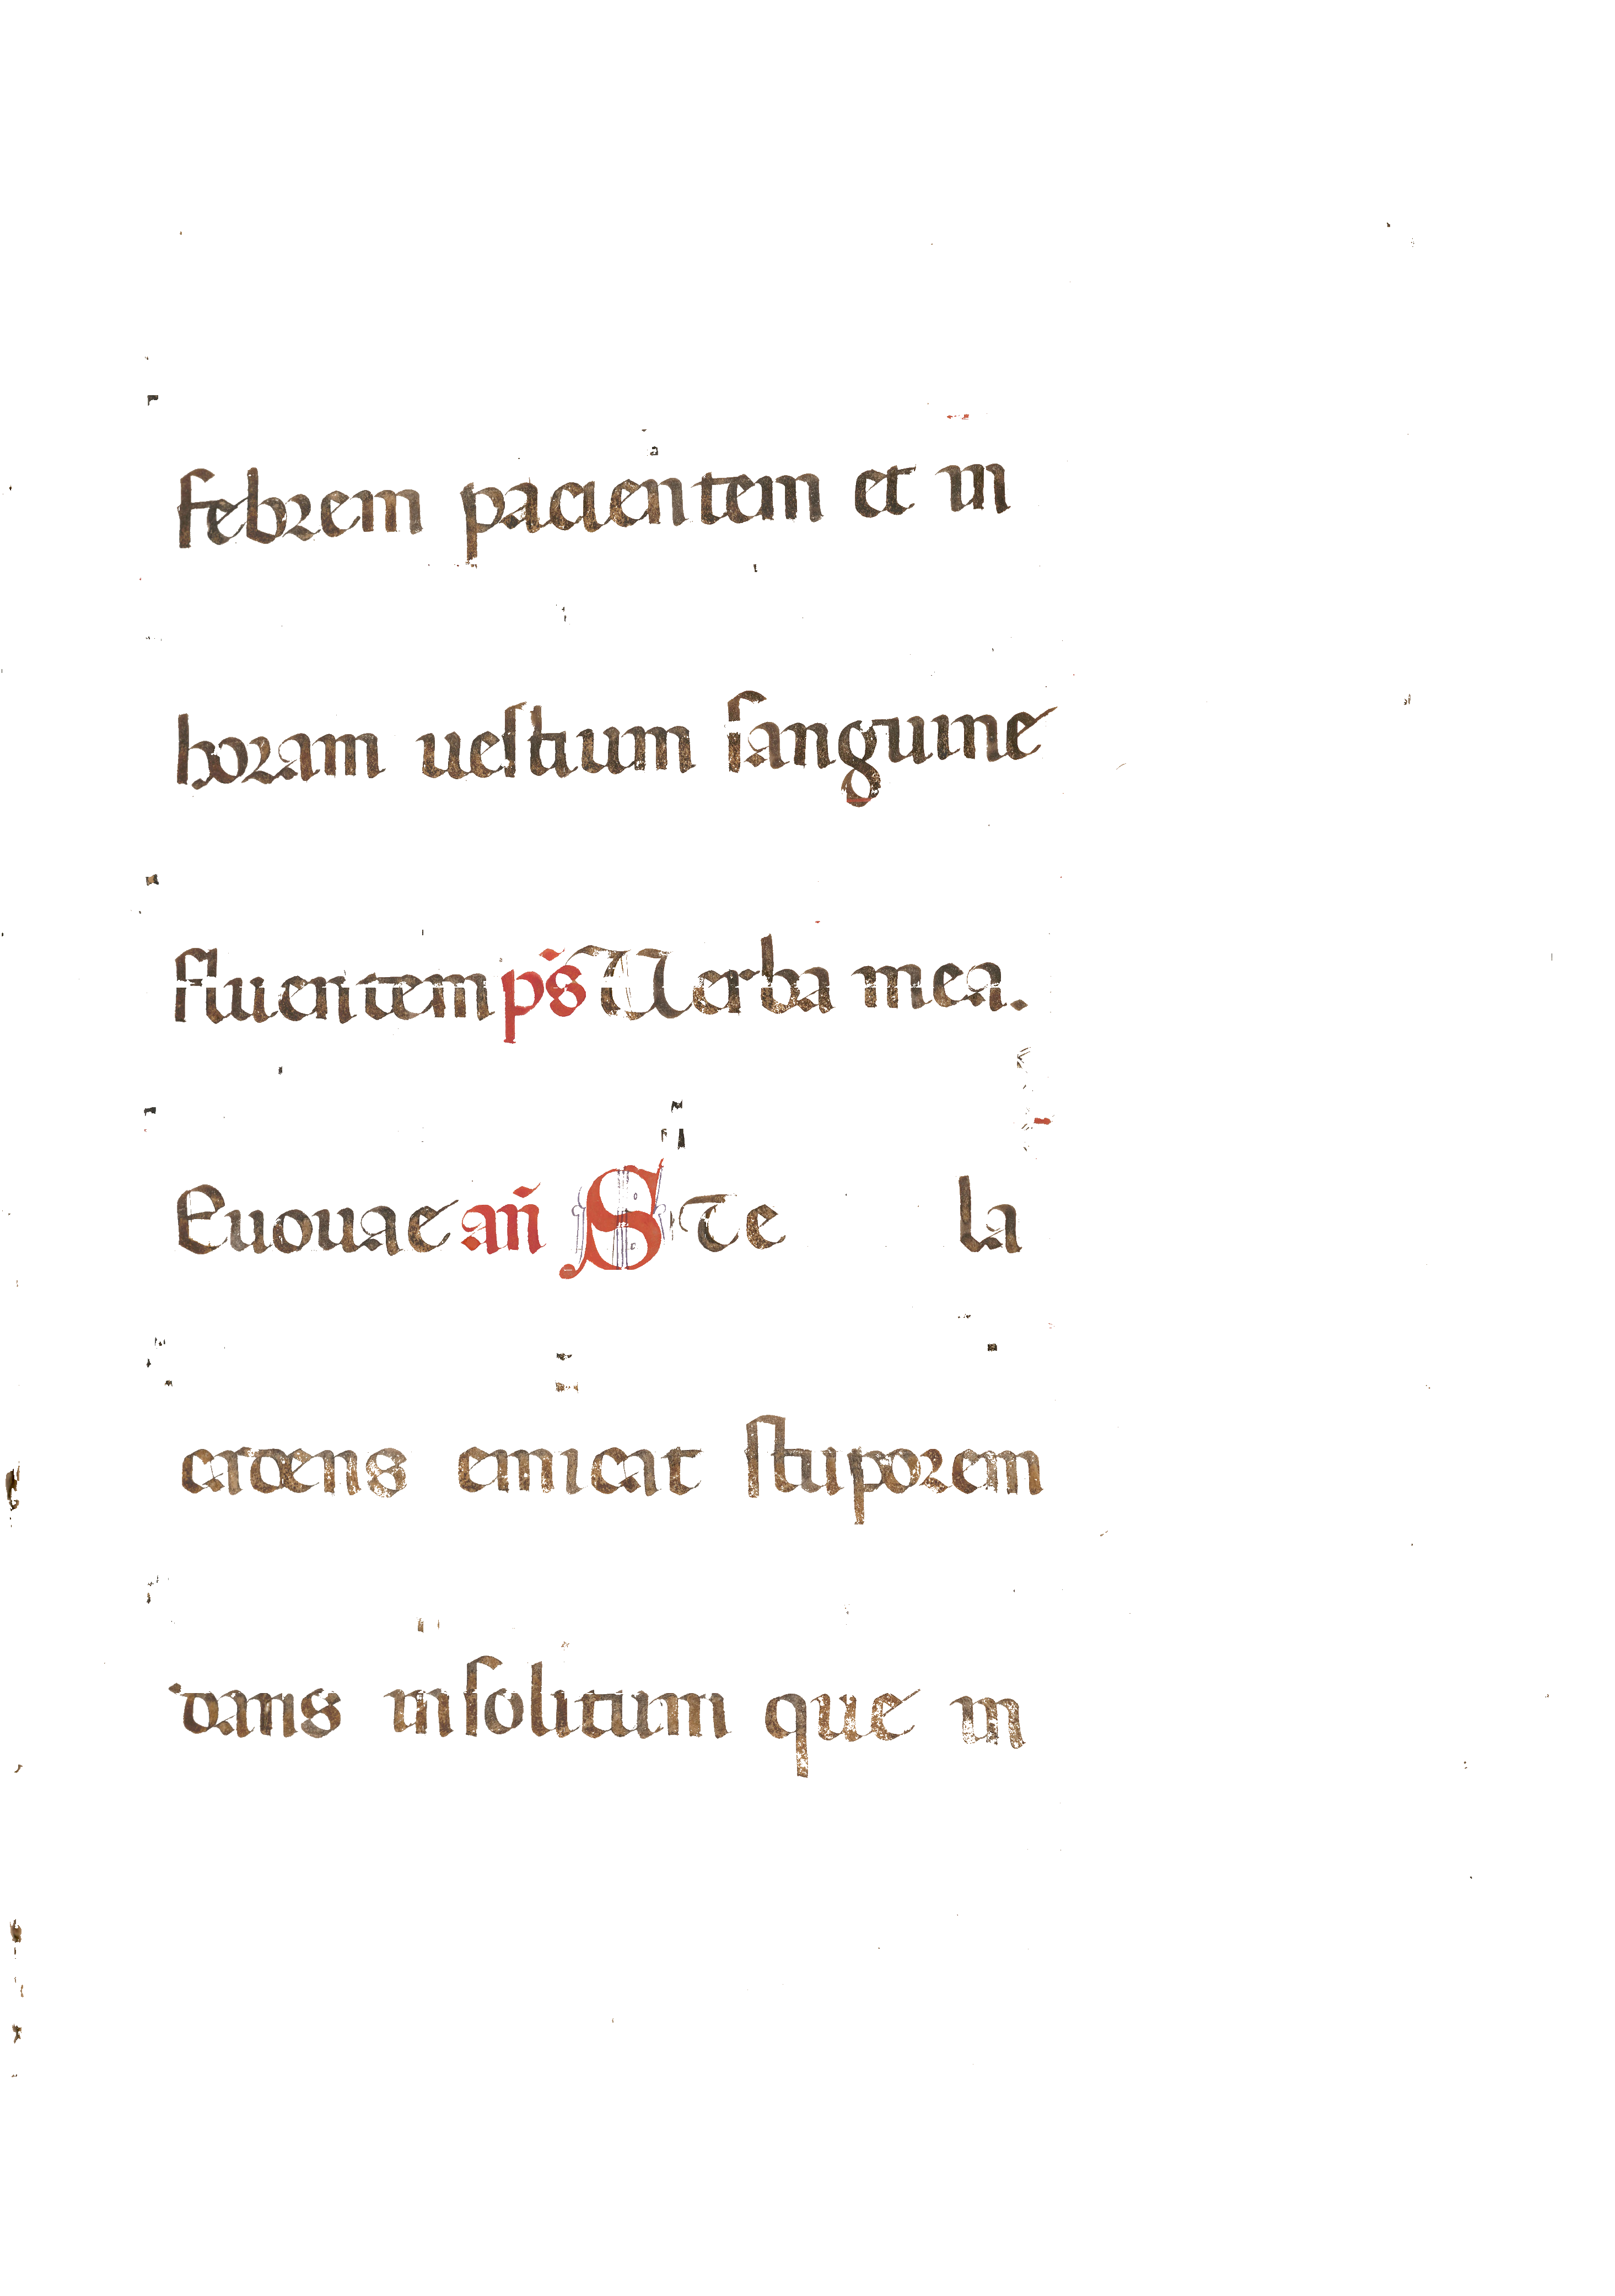 febrem pacientem et in
horam uestium sanguine
fluentem ps̄ Uerba mea.
Euouae an̄ S Te la
erdens emicat stuporem
dans insolitum que in